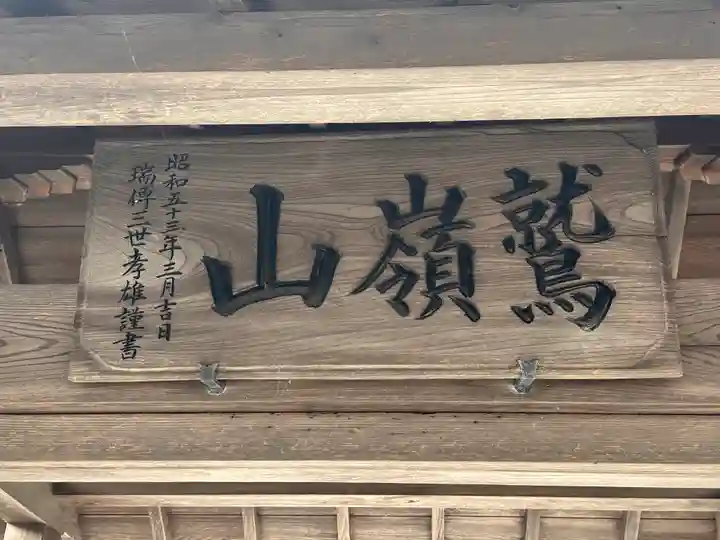 鷲嶺山
昭和五十三年三月吉日
瑞俾三世孝雄謹書